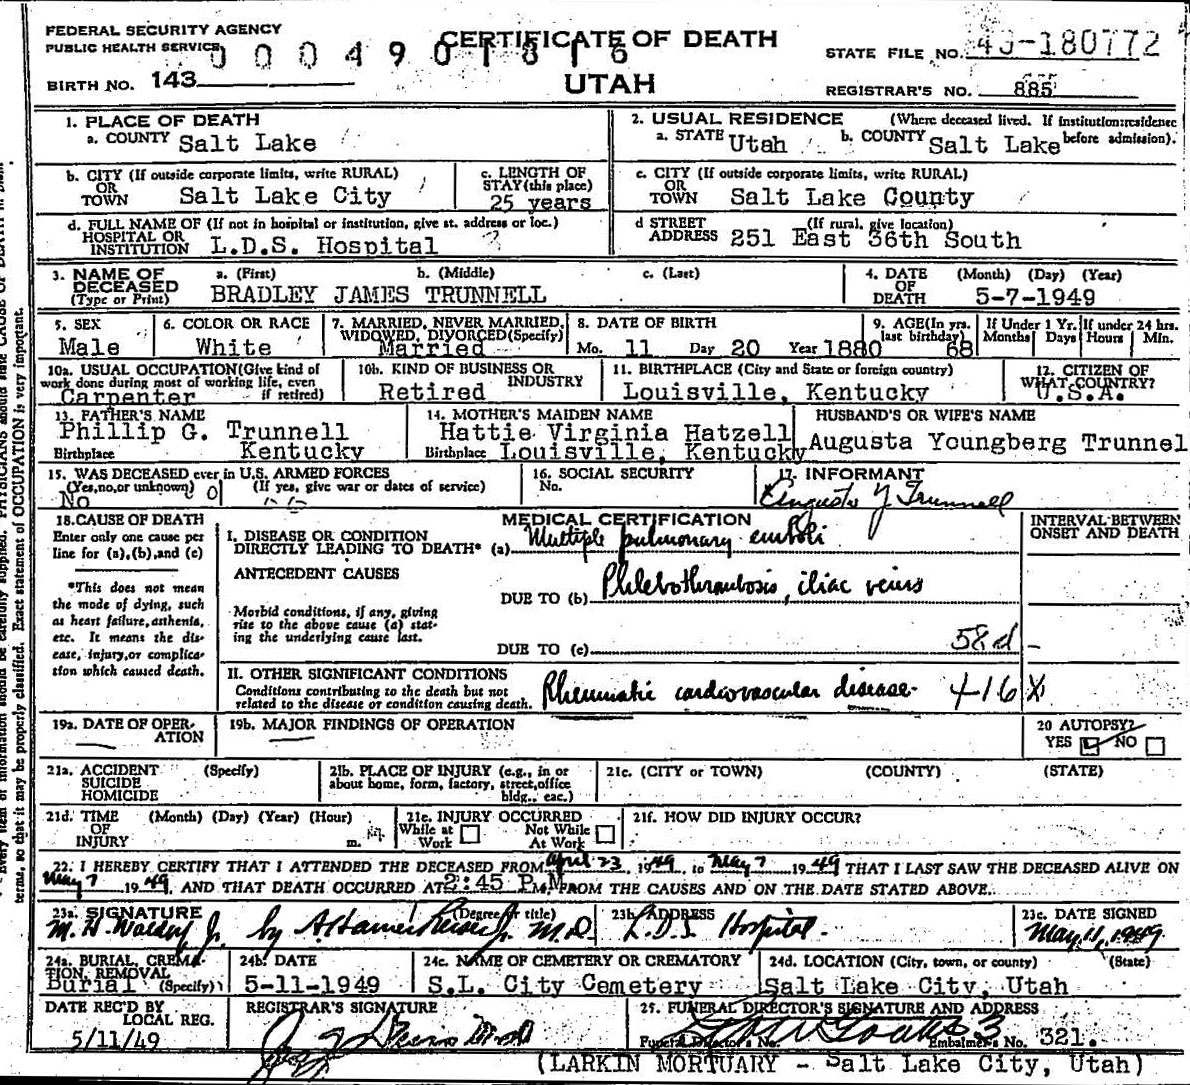 FEDERAL SECURITY AGENCY
PUBLIC HEALTH SERVICE
0 0 0 4 9 0 1 8 1 6
CERTIFICATE OF DEATH
UTAH
STATE FILE NO. 49-180772
BIRTH NO. 143
REGISTRAR'S NO. 885
1. PLACE OF DEATH
a. COUNTY Salt Lake
2. USUAL RESIDENCE (Where deceased lived. If institution:residence before admission).
a. STATE Utah b. COUNTY Salt Lake
b. CITY (If outside corporate limits, write RURAL)
OR TOWN Salt Lake City
c. LENGTH OF STAY (this place)
25 years
c. CITY (If outside corporate limits, write RURAL)
OR TOWN Salt Lake County
d. FULL NAME OF (If not in hospital or institution, give st. address or loc.)
HOSPITAL OR INSTITUTION L.D.S. Hospital
d STREET ADDRESS (If rural, give location)
251 East 36th South
3. NAME OF DECEASED (Type or Print)
a. (First) b. (Middle) c. (Last)
BRADLEY JAMES TRUNNELL
4. DATE OF DEATH (Month) (Day) (Year)
5-7-1949
5. SEX
Male
6. COLOR OR RACE
White
7. MARRIED, NEVER MARRIED, WIDOWED, DIVORCED (Specify)
Married
8. DATE OF BIRTH
Mo. 11 Day 20 Year 1880
9. AGE (In yrs. last birthday)
68
If Under 1 Yr. Months Days
If under 24 hrs. Hours Min.
10a. USUAL OCCUPATION (Give kind of work done during most of working life, even if retired)
Carpenter
10b. KIND OF BUSINESS OR INDUSTRY
Retired
11. BIRTHPLACE (City and State or foreign country)
Louisville, Kentucky
12. CITIZEN OF WHAT COUNTRY?
U.S.A.
13. FATHER'S NAME
Phillip G. Trunnell
Birthplace Kentucky
14. MOTHER'S MAIDEN NAME
Hattie Virginia Hatzell
Birthplace Louisville, Kentucky
HUSBAND'S OR WIFE'S NAME
Augusta Youngberg Trunnel
15. WAS DECEASED ever in U.S. ARMED FORCES
(Yes, no, or unknown) (If yes, give war or dates of service)
No
16. SOCIAL SECURITY No.
17. INFORMANT
Augusta Y Trunnell
18. CAUSE OF DEATH
Enter only one cause per line for (a), (b), and (c)
*This does not mean the mode of dying, such as heart failure, asthenia, etc. It means the disease, injury, or complication which caused death.
MEDICAL CERTIFICATION
INTERVAL BETWEEN ONSET AND DEATH
I. DISEASE OR CONDITION DIRECTLY LEADING TO DEATH* (a) Multiple pulmonary emboli
ANTECEDENT CAUSES
Morbid conditions, if any, giving rise to the above cause (a) stating the underlying cause last.
DUE TO (b) Phlebothrombosis, iliac veins
DUE TO (c)
II. OTHER SIGNIFICANT CONDITIONS
Conditions contributing to the death but not related to the disease or condition causing death.
Rheumatic cardiovascular disease. 416 X
19a. DATE OF OPERATION
19b. MAJOR FINDINGS OF OPERATION
20 AUTOPSY?
YES NO
21a. ACCIDENT SUICIDE HOMICIDE (Specify)
21b. PLACE OF INJURY (e.g., in or about home, form, factory, street, office bldg., eac.)
21c. (CITY or TOWN) (COUNTY) (STATE)
21d. TIME OF INJURY (Month) (Day) (Year) (Hour) m.
21e. INJURY OCCURRED
While at Work Not While At Work
21f. HOW DID INJURY OCCUR?
22. I HEREBY CERTIFY THAT I ATTENDED THE DECEASED FROM April 23, 1949, to May 7 1949 THAT I LAST SAW THE DECEASED ALIVE ON
May 7 1949, AND THAT DEATH OCCURRED AT 2:45 P M, FROM THE CAUSES AND ON THE DATE STATED ABOVE.
23a. SIGNATURE (Degree or title)
by M.D.
23b. ADDRESS
L.D.S. Hospital.
23c. DATE SIGNED
May, 11, 1949
24a. BURIAL, CREMATION, REMOVAL (Specify)
Burial
24b. DATE
5-11-1949
24c. NAME OF CEMETERY OR CREMATORY
S.L. City Cemetery
24d. LOCATION (City, town, or county) (State)
Salt Lake City, Utah
DATE REC'D BY LOCAL REG.
5/11/49
REGISTRAR'S SIGNATURE
25. FUNERAL DIRECTOR'S SIGNATURE AND ADDRESS
Funeral Director's No. Embalmer's No. 321.
(LARKIN MORTUARY - Salt Lake City, Utah)
terms, so that it may be properly classified. Exact statement of OCCUPATION is very important.